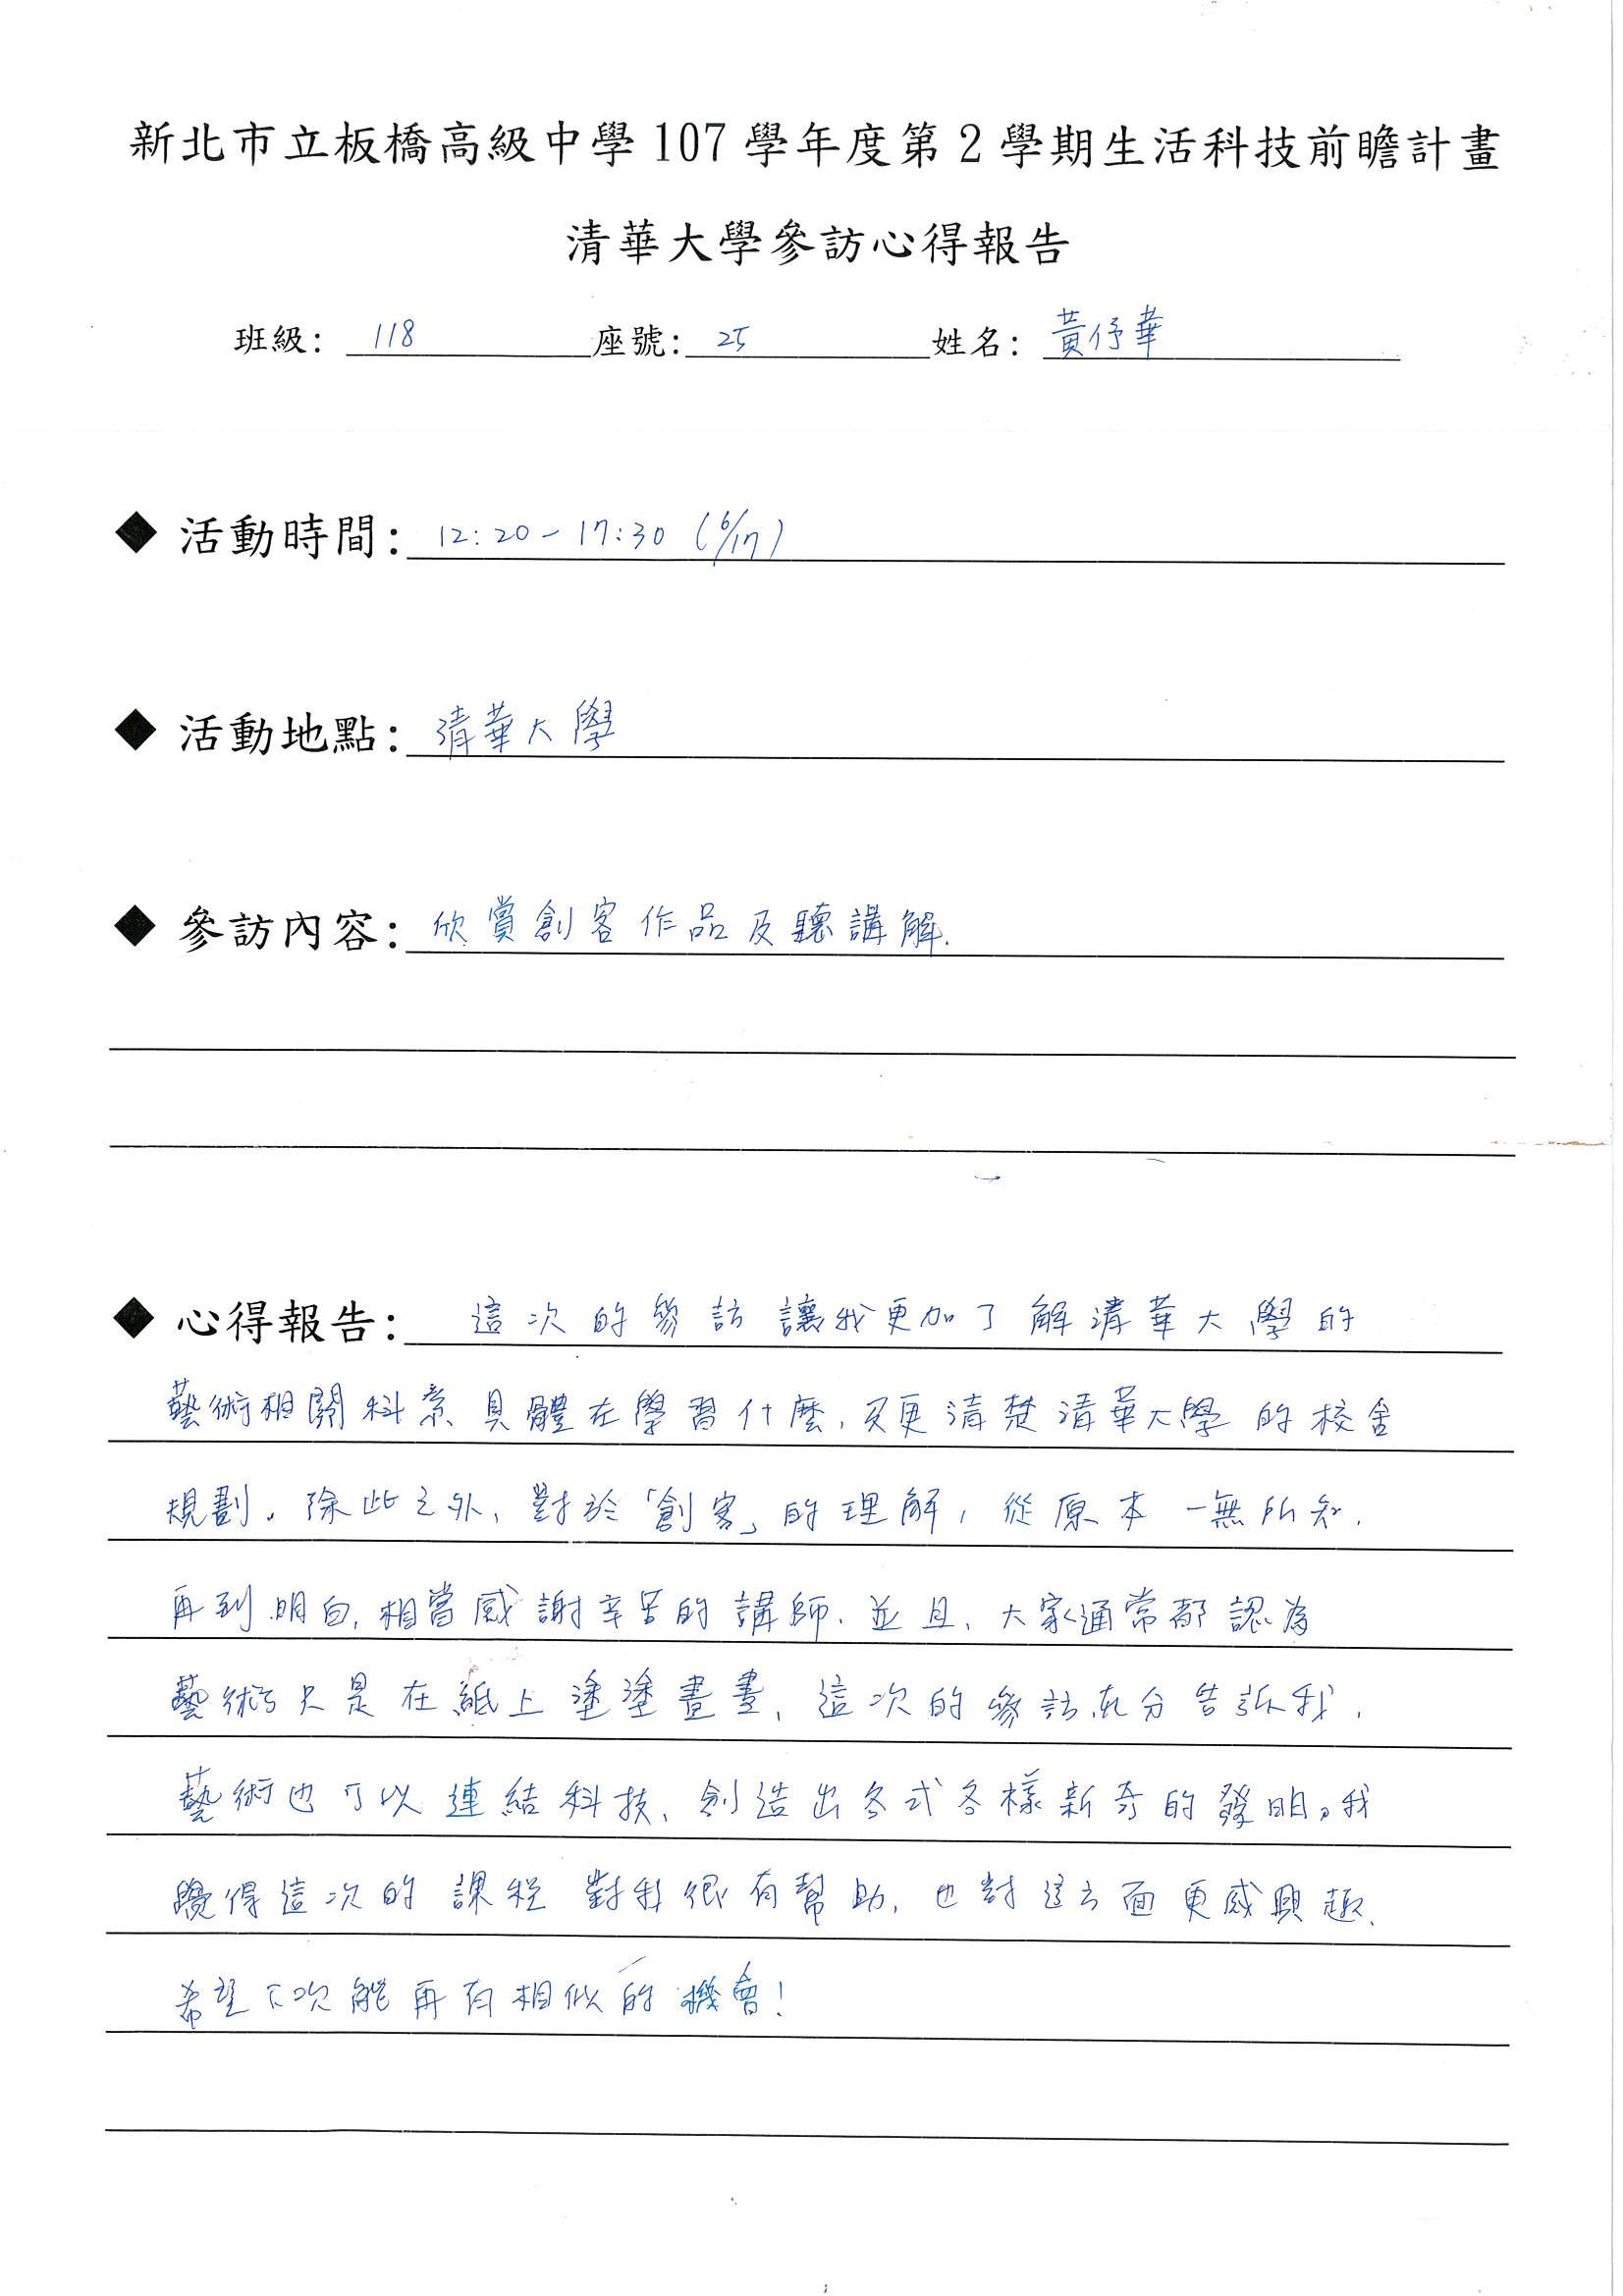 新北市立板橋高級中學107學年度第2學期生活科技前瞻計畫
清華大學參訪心得報告
班級： 118 座號： 25 姓名： 黃伃華
◆ 活動時間： 12:20－17:30 (6/17)
◆ 活動地點： 清華大學
◆ 參訪內容： 欣賞創客作品及聽講解.
◆ 心得報告： 這次的參訪讓我更加了解清華大學的
藝術相關科系具體在學習什麼，又更清楚清華大學的校舍
規劃。除此之外，對於「創客」的理解，從原本一無所知，
再到明白，相當感謝辛苦的講師。並且，大家通常都認為
藝術只是在紙上塗塗畫畫，這次的參訪充分告訴我，
藝術也可以連結科技，創造出各式各樣新奇的發明。我
覺得這次的課程對我很有幫助，也對這方面更感興趣，
希望下次能再有相似的機會！